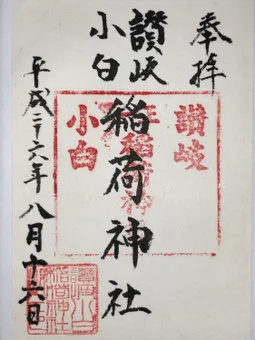 奉拝
讃岐
小白
稲荷神社
平成二十六年八月十六日
讃岐
小白